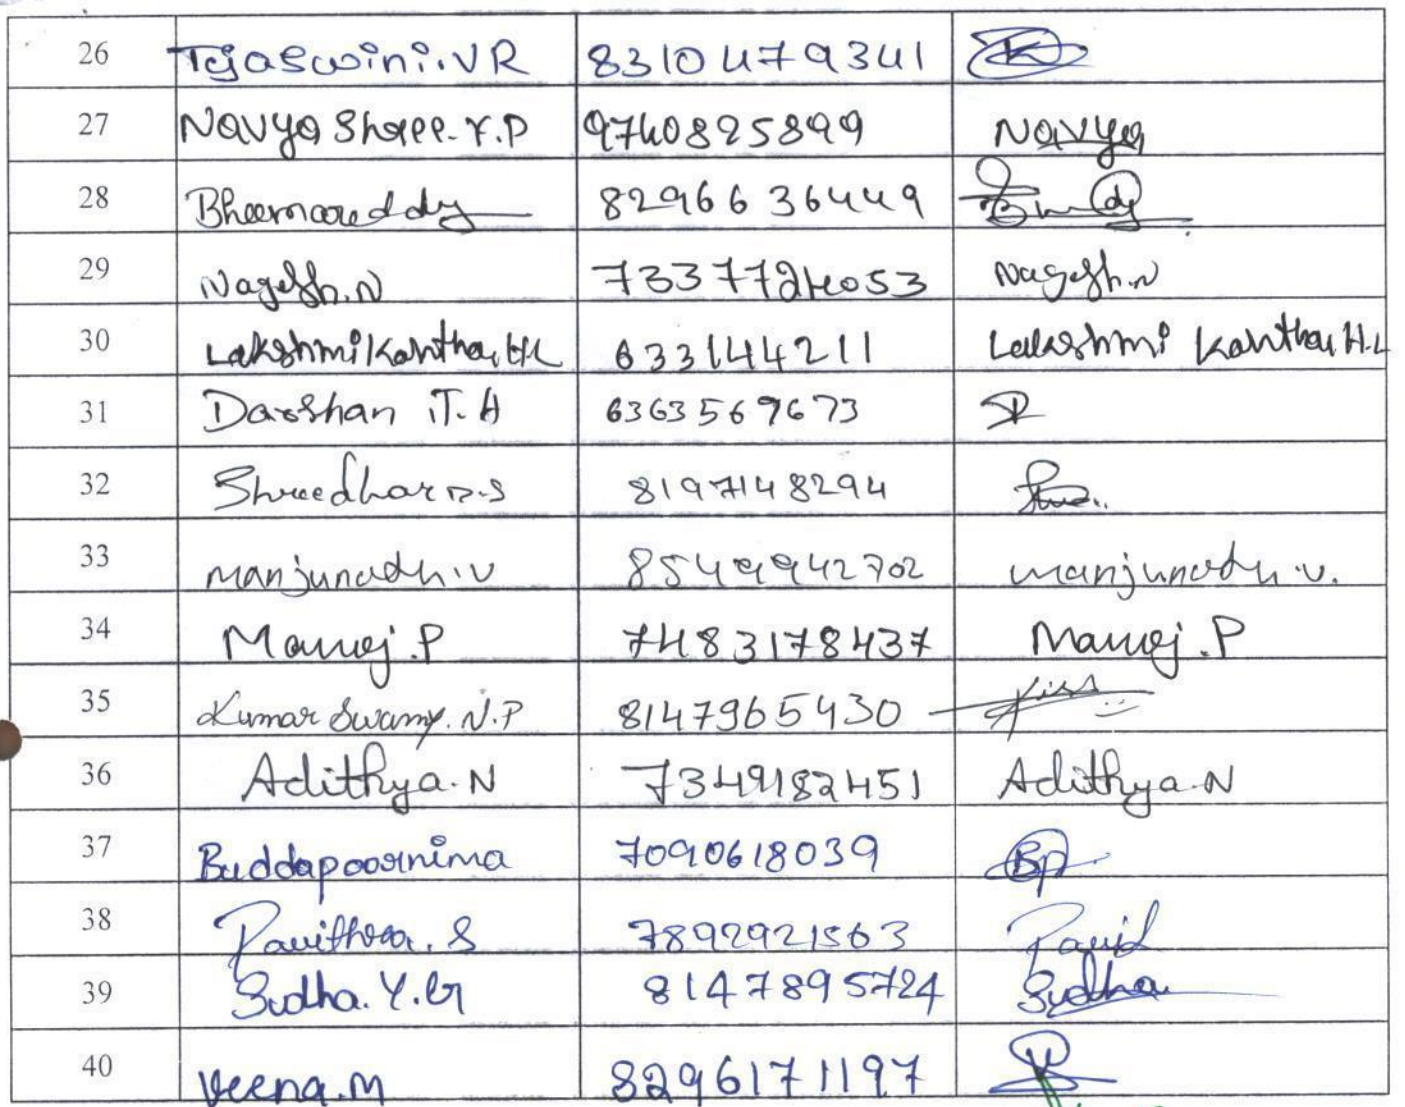 26 Tejaswini.VR 8310479341
27 Navya Shree.Y.P 9740825899 Navya
28 Bheemareddy 8296636449
29 Nagesh.N 7337724053 Nagesh.N
30 Lakshmikantha.H.L 633144211 Lakshmi kantha H.L
31 Darshan T.H 6363569673
32 Shreedhar D.S 8197148294
33 manjunath.v 8549942702 manjunath v.
34 Manoj.P 7483178437 Manoj.P
35 Kumar Swamy.N.P 8147965430
36 Adithya.N 7349182451 Adithya.N
37 Buddapoornima 7090618039 Bp
38 Pavithra.S 7892921563 Pavi
39 Sudha.Y.G 8147895724 Sudha
40 Veena.M 8296171197